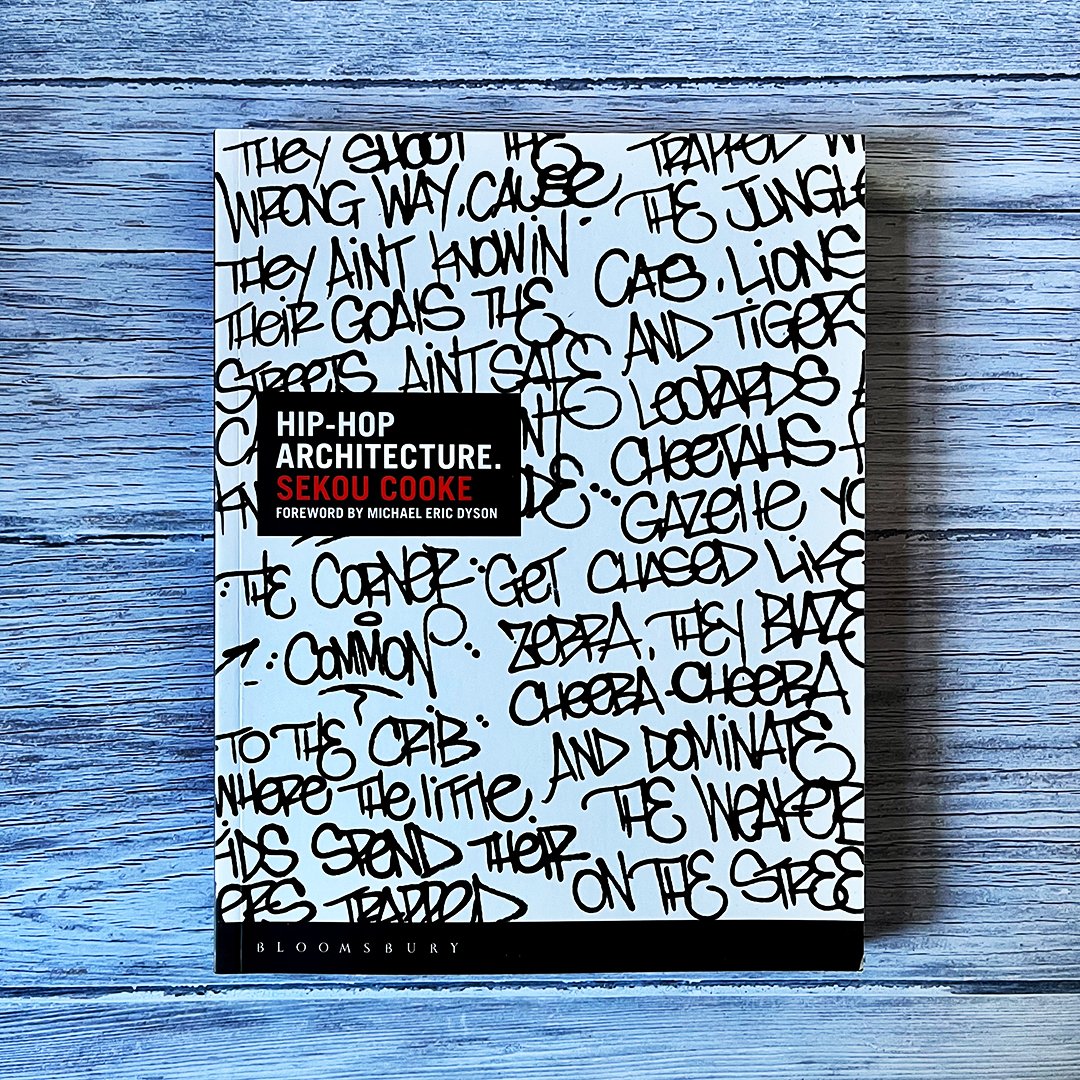 THEY SHOOT THE
WRONG WAY, CAUSE
THEY AINT KNOWIN
THEIR GOALS THE
STREETS AINT SAFE
HIP-HOP
ARCHITECTURE.
SEKOU COOKE
FOREWORD BY MICHAEL ERIC DYSON
THE CORNER
COMMON
TO THE CRIB
WHERE THE LITTLE
KIDS SPEND THEIR
TRAPPED
TRAPPED
THE JUNGLE
CATS, LIONS
AND TIGERS
LEOPARDS
CHEETAHS
GAZELLE YO
GET CHASED LIKE
ZEBRA, THEY BLAZE
CHEEBA-CHEEBA
AND DOMINATE
THE WEAKER
ON THE STREE
BLOOMSBURY